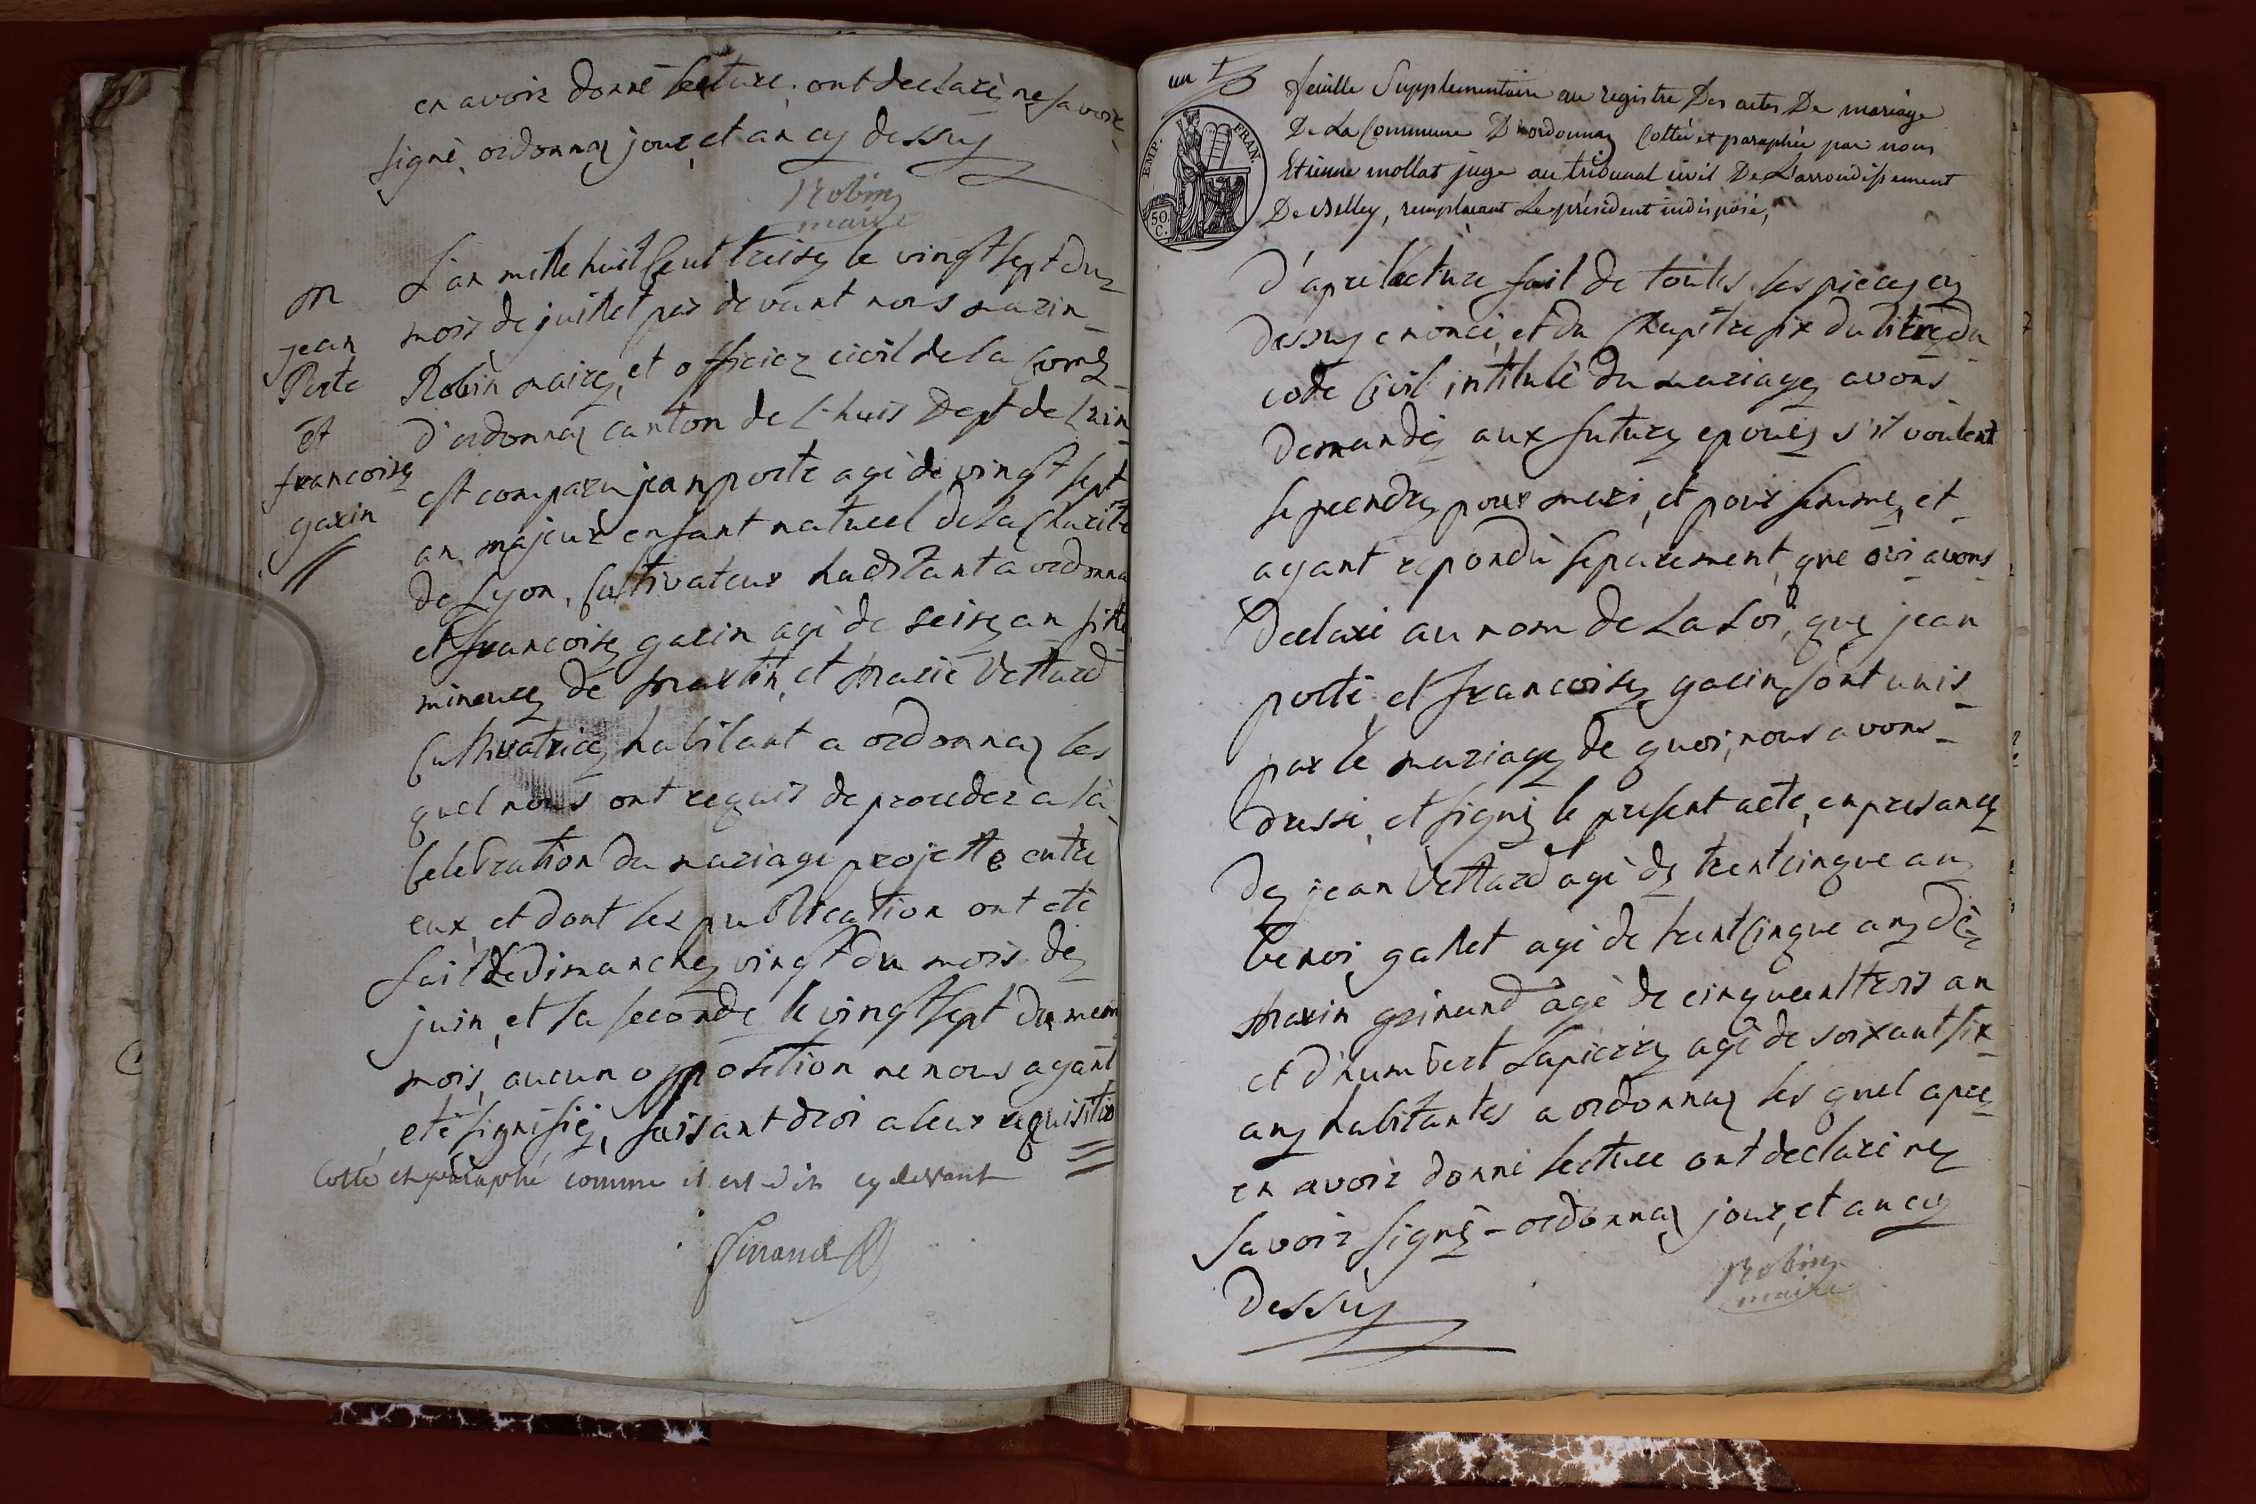 en avoir donné lecture, ont declaré ne savoir
signé, ordonnaz jour, et an cy dessuz
Robin
maire
m
jean
Porte
et
francoise
garin
L'an mille huit Cent treize le vingt sept du
mois de juillet par devant nous marin
Robin maire, et officiez civil de la Com
d'ordonnaz canton de Lhuis Dept de Lain
est comparu jean porte agé de vingt sept
an majeur enfant naturel de la Charite
de Lyon, Cultivateur habitant a ordonna
et francoise garin agé de seize an fille
mineure de martin, et marie Vettard
Cultivatrice habitant a ordonnaz les
quel nous ont requis de proceder a la
Celebration du mariage projette entre
eux, et dont les publication ont eté
fait Le dimanche vingt du mois de
juin, et la seconde le vingt sept du mem
mois, aucun opposition ne nous ayant
eté signifié, faisant droi a leur requisitio
Cotté et paraphé comme il est dit cy devant
un
EMP. FRAN.
50
C.
feuille Supplementaire au registre Des actes De mariage
De La Commune D'ordonnaz Cottée et paraphée par nous
Etienne mollat juge au tribunal civil De L'arrondissement
De Belley, remplaçant Le président indisposé,
D'apré lecture fait de toutes les pieces cy
dessuz enoncé, et du Chapitre six du titre du
code Civil intitulé du mariage avons
demandé aux futurs epouès s'il voulent
se prendre pour mari, et pour femme, et
ayant repondu séparement, que oui avons
Declaré au nom de La Loi, que jean
porte, et francoise garin sont unis
par le mariage de quoi, nous avons
dressé, et signé le present acte, en presance
de jean Vettard agé de trentcinque an
benoi gallet agé de trentcinque anz de
marin grinand âgé de cinquanttrois an
et d'humbert Lapierre agé de soixantsix
anz habitantes a ordonnaz les quel apre
en avoir donné lecture ont declaré ne
savoir signé - ordonnaz jour, et an cy
Dessuz
Robin
maire